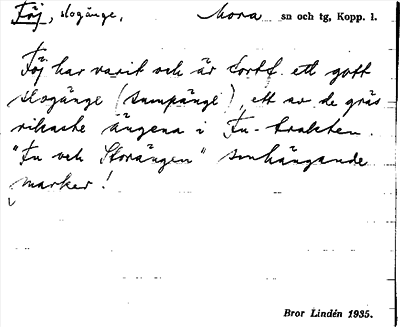 Föj, slogänge, Mora sn och tg, Kopp. l.
Föj har varit och är fortf. ett gott
slogänge (sumpänge), ett av de gräs
rikaste ängena i Fu-trakten.
"Fu och Storängen" smhängande
marker!
Bror Lindén 1935.